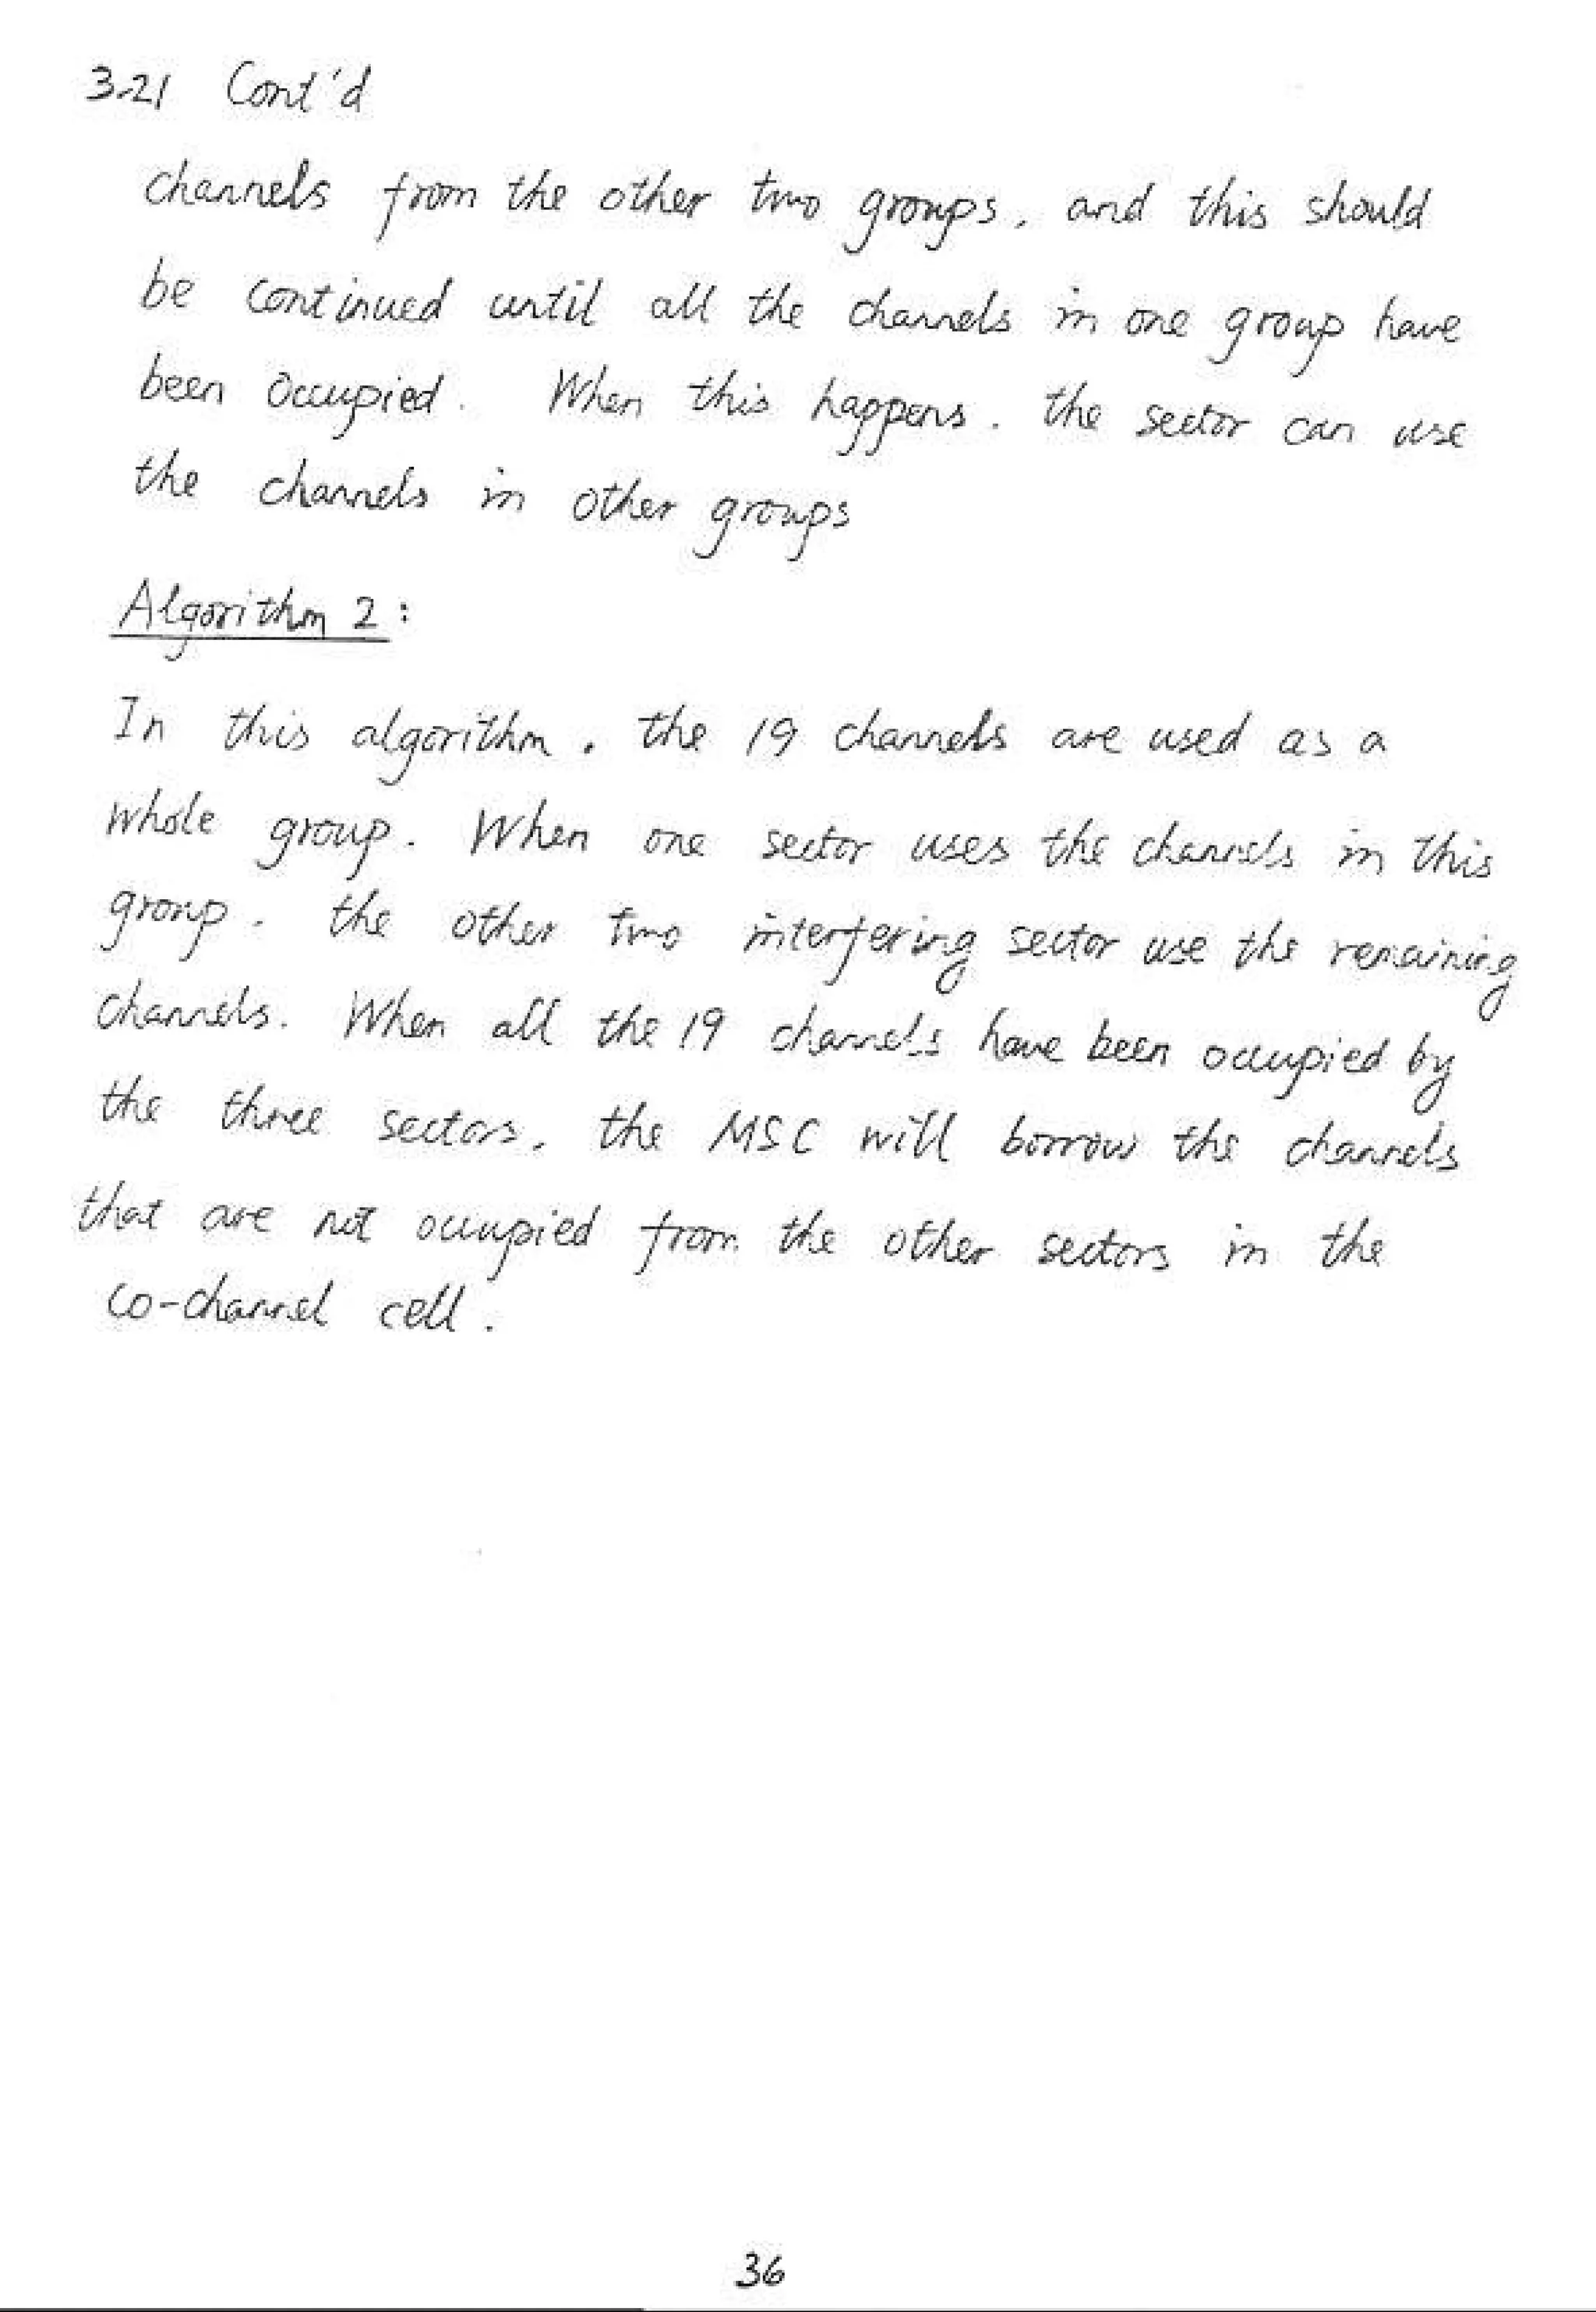 3.21 Cont'd
channels from the other two groups, and this should
be continued until all the channels in one group have
been occupied. When this happens. the sector can use
the channels in other groups
Algorithm 2:
In this algorithm. the 19 channels are used as a
whole group. When one sector uses the channels in this
group. the other two interfering sector use the remaining
channels. When all the 19 channels have been occupied by
the three sectors, the MSC will borrow the channels
that are not occupied from the other sectors in the
co-channel cell.
36